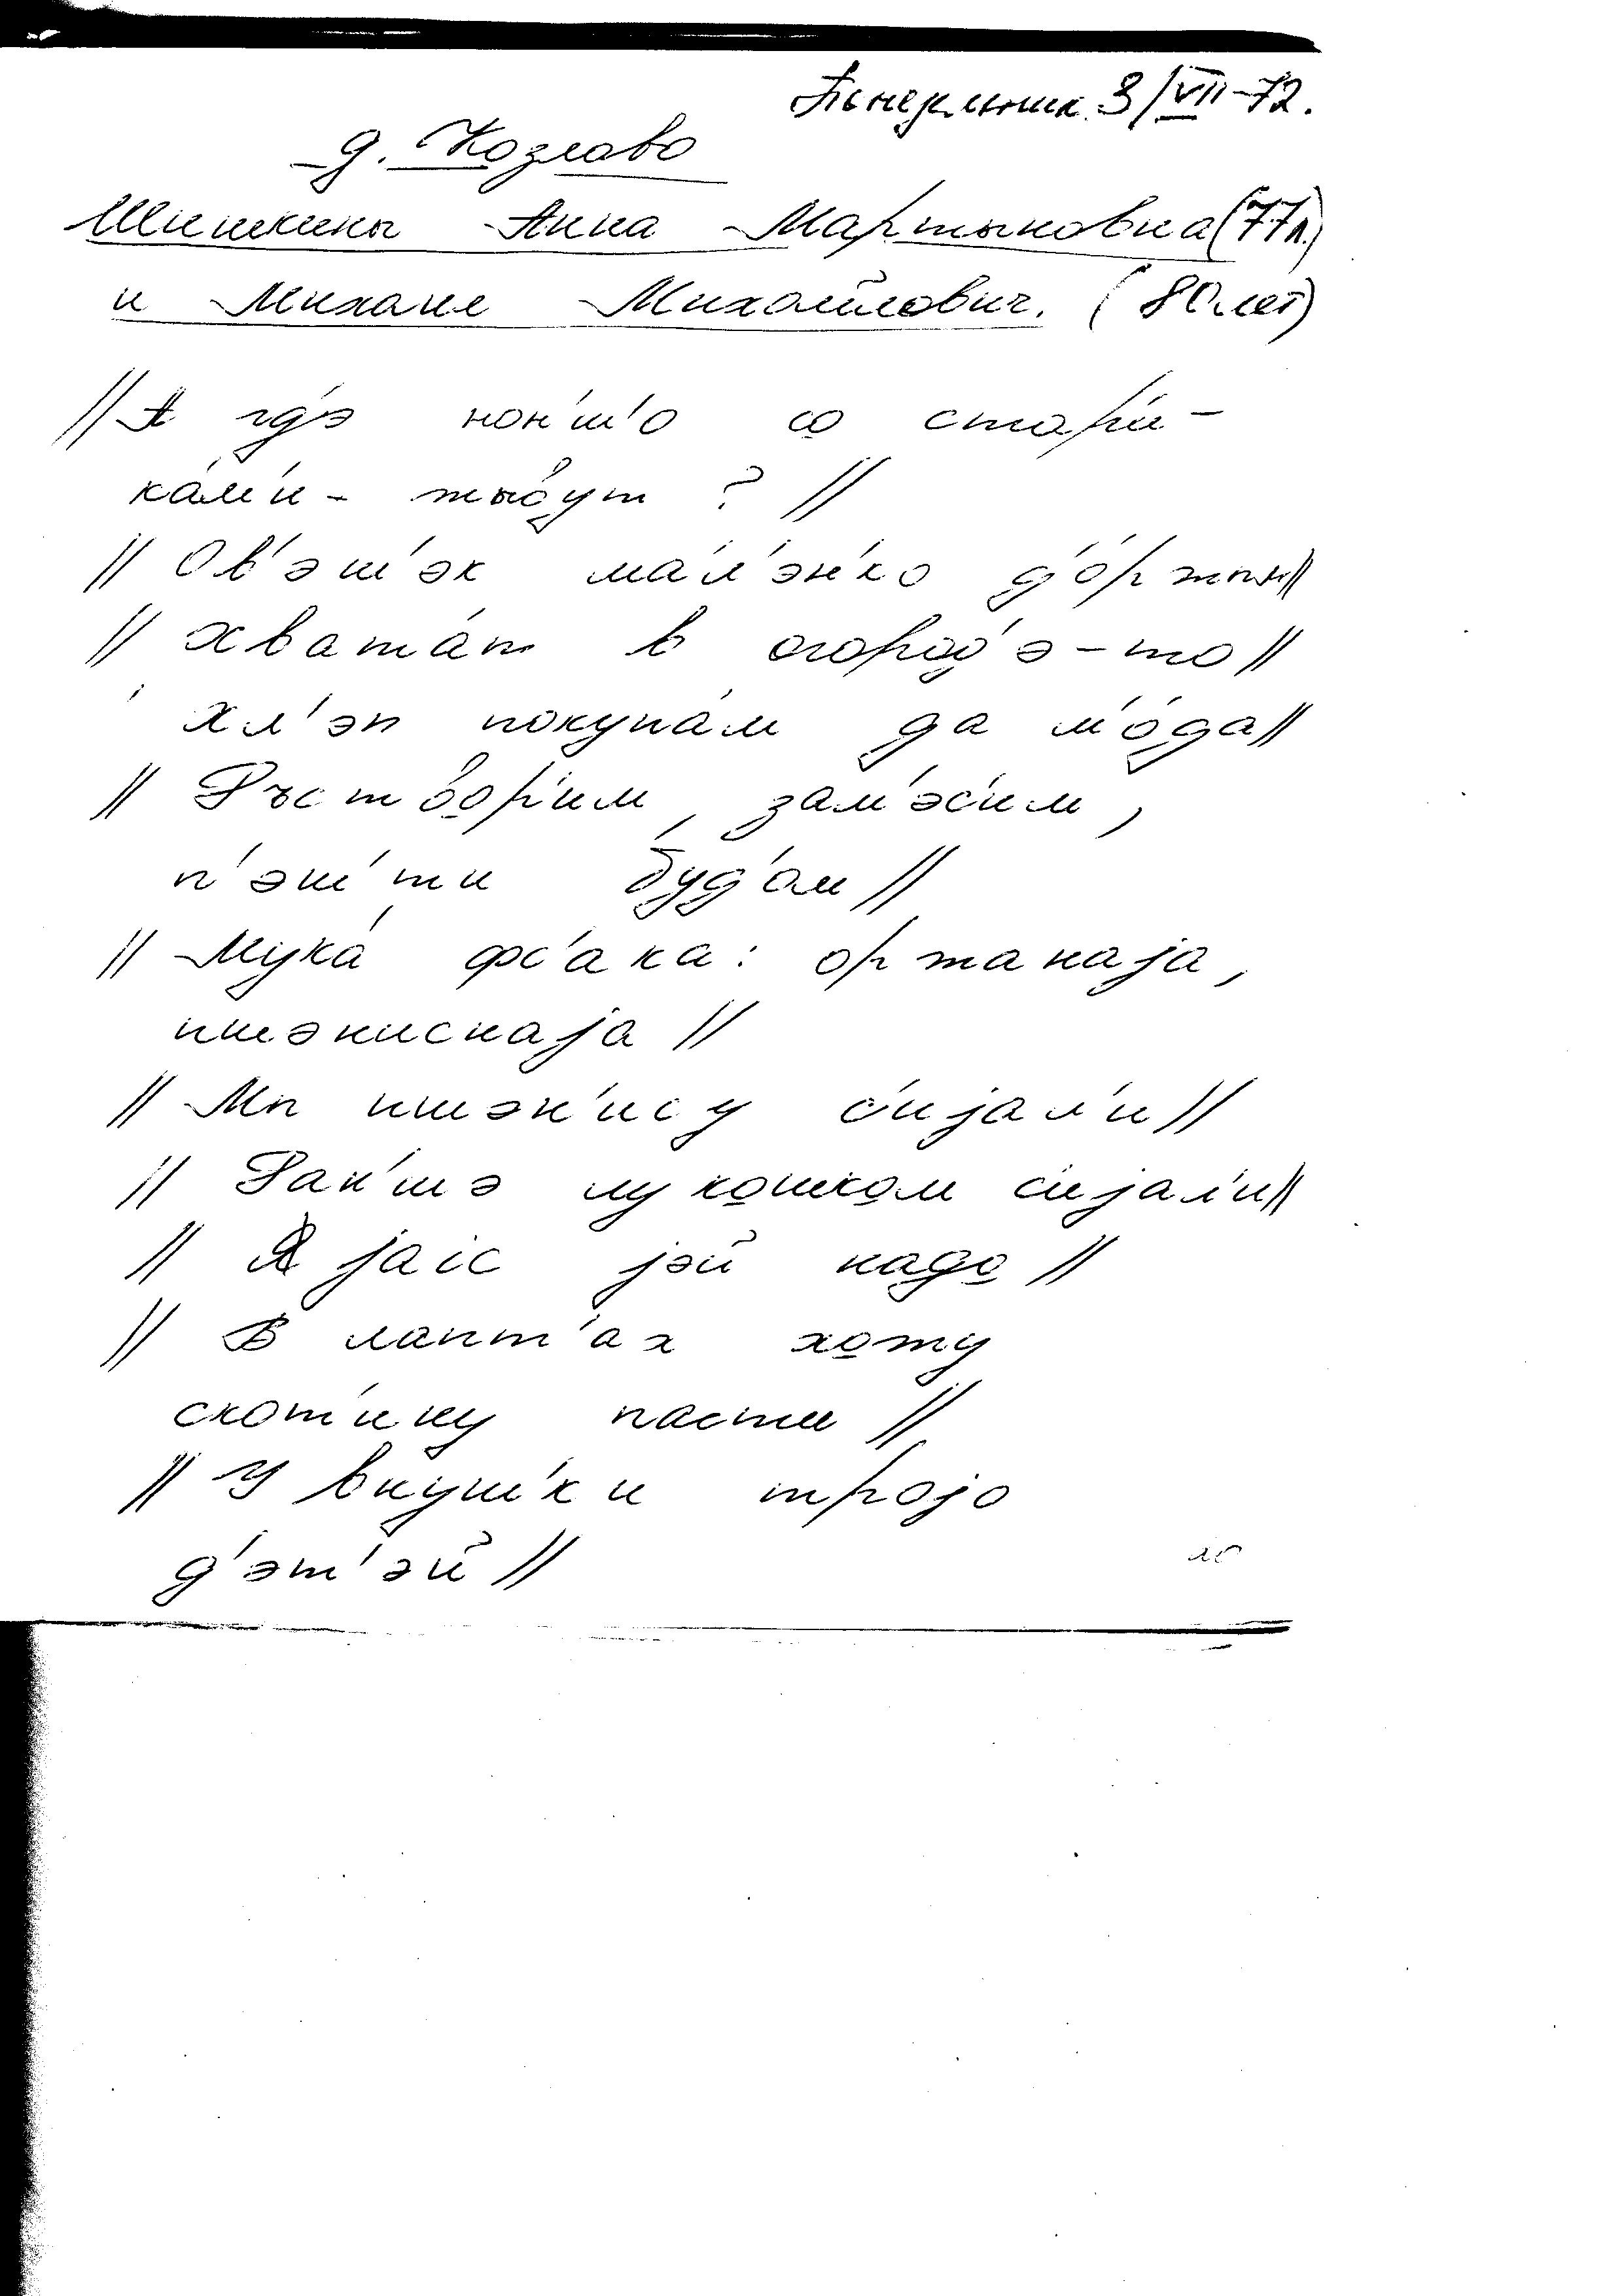 3/VII-72.
д. Козлово
Шишкины Анна Мартыновна (77л.)
и Михаил Михайлович. (80 лет)
// А гд'э нон'ш'о со стар'и-
кам'и - жывут ? //
// Ов'эч'эк мал'эн'ко д'óржым //
// хватáт в огород'э-то //
хл'эп покупáм да м'óда //
// Ръствóр'им, зам'эс'им,
п'эч'ти буд'ом //
// Мукá фс'ака: оржанаjа,
пшэниснаjа //
// Мы пшэн'ису с'иjал'и //
// Ран'шэ лукошком с'иjал'и //
// Я jаiс jэй надо //
// В лапт'ах хожу
скот'ину пасти //
// У внуч'ки троjо
д'эт'эй //